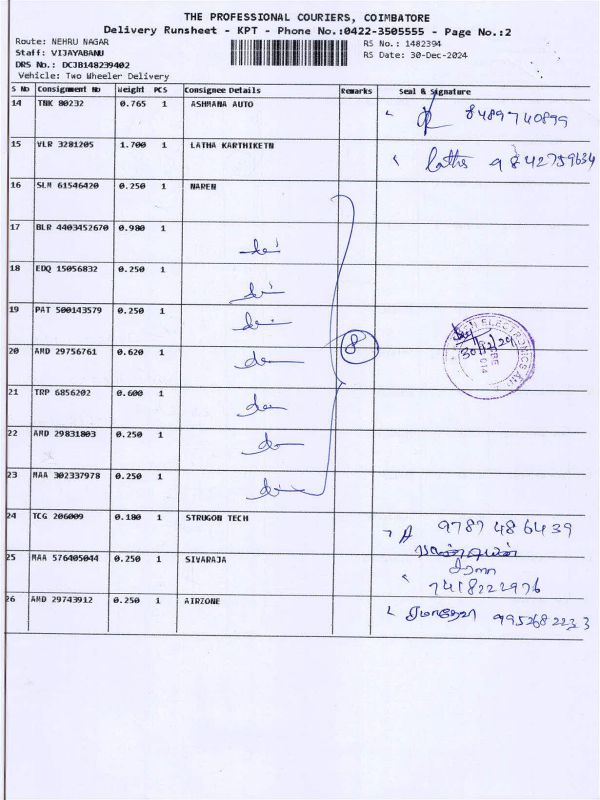 THE PROFESSIONAL COURIERS, COIMBATORE
Delivery Runsheet - KPT - Phone No.:0422-3505555 - Page No.:2
Route: NEHRU NAGAR RS No.: 1482394
Staff: VIJAYABANU RS Date: 30-Dec-2024
DRS No.: DCJB148239402
Vehicle: Two Wheeler Delivery
S No Consignment No Weight PCS Consignee Details Remarks Seal & Signature
14 TNK 80232 0.765 1 ASHMANA AUTO 8489740899
15 VLR 3281205 1.700 1 LATHA KARTHIKETN Latha 9842759634
16 SLM 61546420 0.250 1 NAREN
17 BLR 4403452670 0.980 1
18 EDQ 15056832 0.250 1
19 PAT 500143579 0.250 1
20 AMD 29756761 0.620 1 8 30/12/24
21 TRP 6856202 0.600 1
22 AMD 29831803 0.250 1
23 MAA 302337978 0.250 1
24 TCG 206009 0.180 1 STRUGON TECH 9787486439
25 MAA 576405044 0.250 1 SIVARAJA
7418222976
26 AMD 29743912 0.250 1 AIRZONE 9952682233